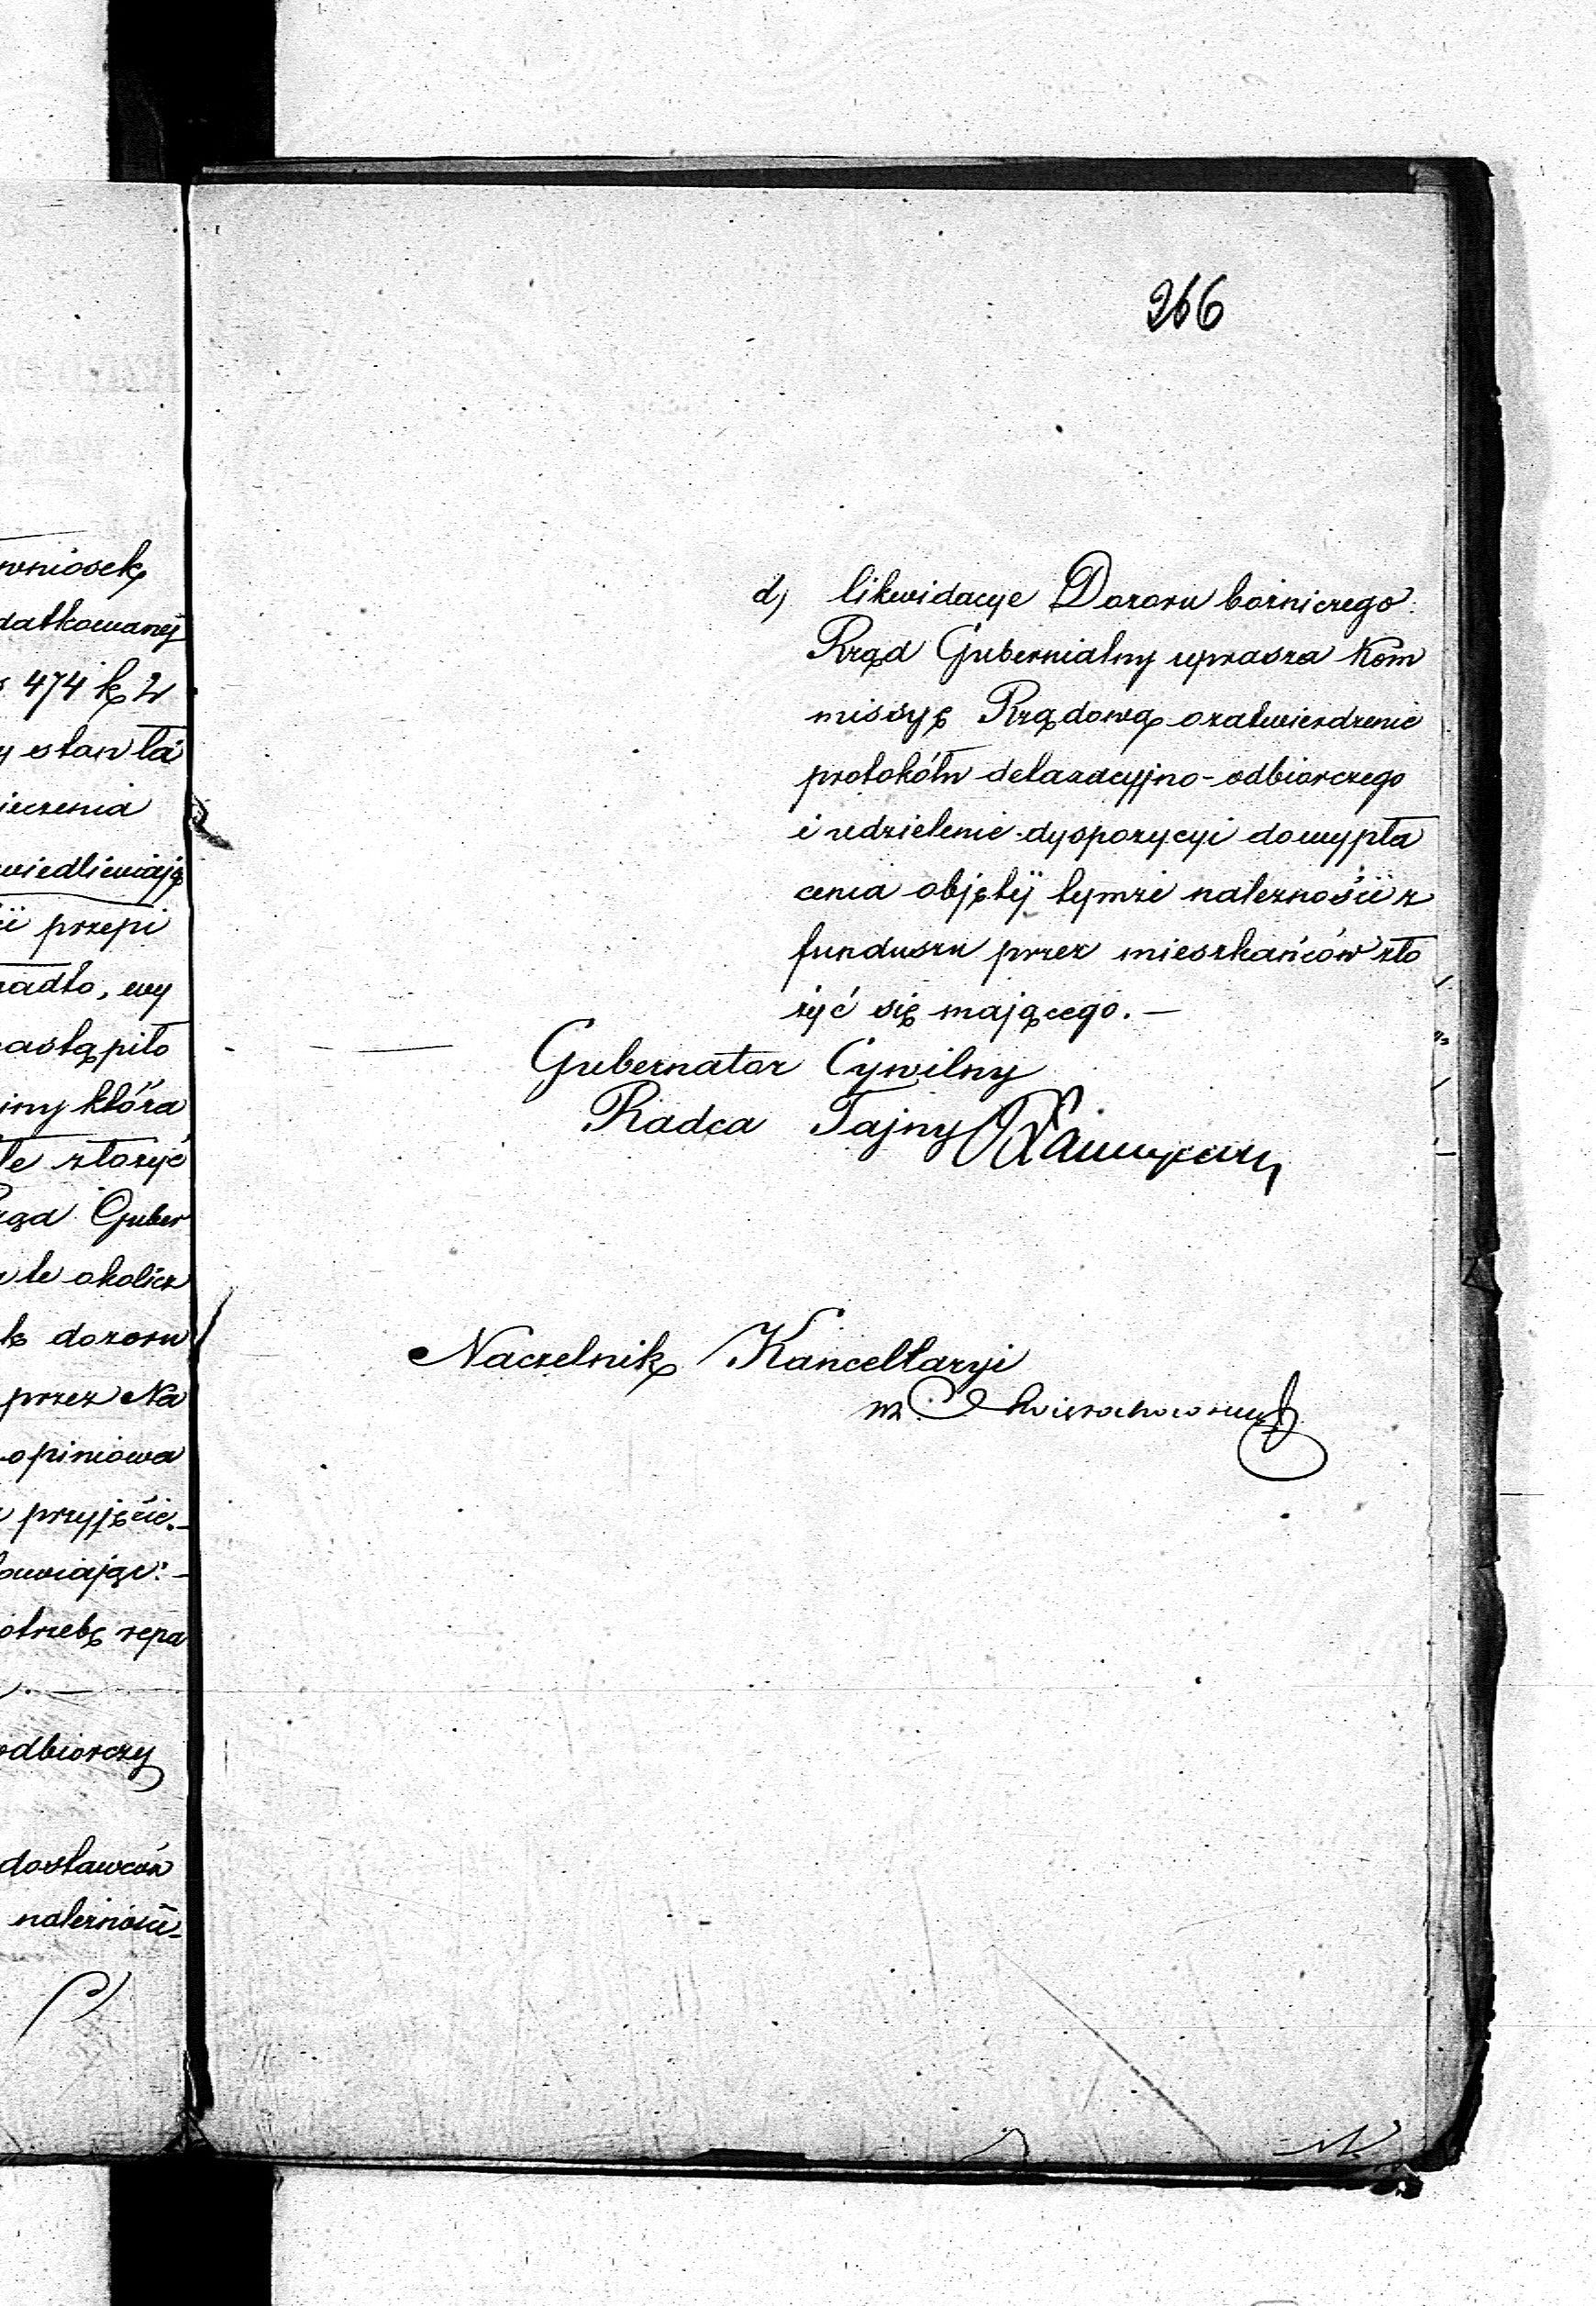 wniosek
datkowanéj
474 k 2
stan ta
ieczenia
wiedliwiają
ii przepi
adło, wy
astąpiło
iny która
te złożyć
ząd Guber
te okolicz
dozoru
przez Na
opiniowa
przyjęcie.
owiając:
otrzebę repa
odbiorczy
dostawców
należności
266
d) likwidacyę Dozoru bożniczego.
Rząd Gubernialny uprasza Kom
missyę Rządową o zatwierdzenie
protokółu detaxacyjno-odbiorczego
i udzielenie dyspozycyi do wypła
cenia objętéj tymże należności z
funduszu przez mieszkańców zło
żyć się mającego. —
Gubernator Cywilny
Radca Tajny
Naczelnik Kancellaryi